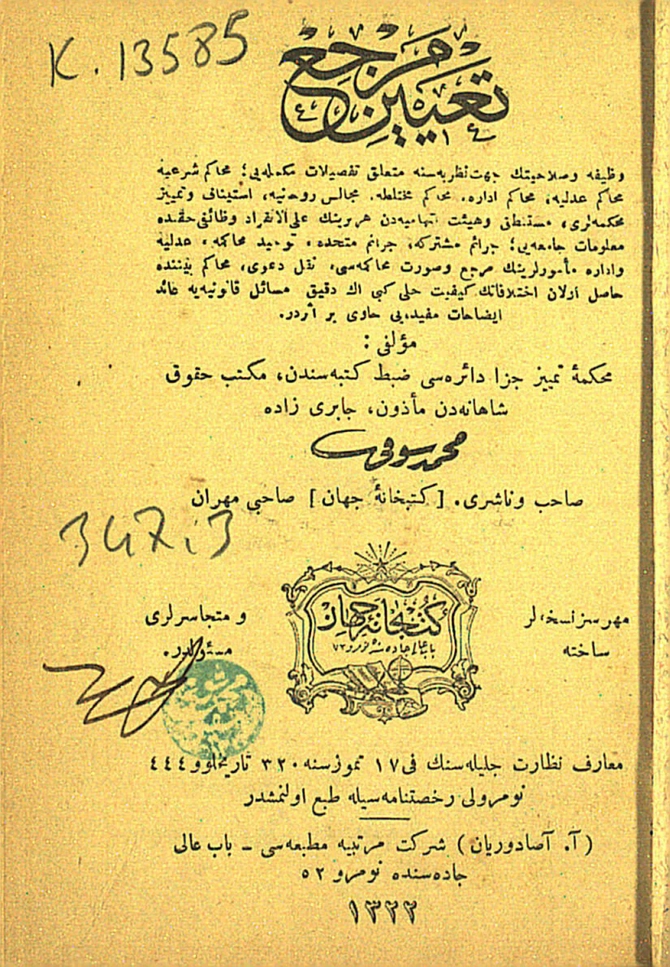 K. 13585
تعيين مرجع
وظيفه و صلاحيتك جهت نظريه سنه متعلق تفصيلات مكمله يى؛ محاكم شرعيه
محاكم عدليه، محاكم اداره، محاكم مختلطه. مجالس روحانيه، استيناف وتمييز
محكمه لرى، مستنطق وهيئت اتهاميه دن هر برينك على الانفراد وظائفى حقنده
معلومات جامعه يى؛ جرائم مشتركه، جرائم متحده، توحيد محاكمه، عدليه
واداره مأمورلرينك مرجع وصورت محاكمه سى، نقل دعوى، محاكم بيننده
حاصل اولان اختلافاتك كيفيت حلى كبى اك دقيق مسائل قانونيه يه عائد
ايضاحات مفيده يى حاوى بر اثردر.
مؤلفى :
محكمۀ تمييز جزا دائره سى ضبط كتبه سندن، مكتب حقوق
شاهانه دن مأذون، جابرى زاده
محمد
صاحب وناشرى. [ كتبخانۀ جهان ] صاحبى مهران
347.3
مهر سز نسخه لر
ساخته
كتبخانه جهان
باب عالى جاده سنده نومرو ٧٣
و متجاسرلرى
مسئولدر.
معارف نظارت جليله سنك فى ١٧ تموز سنه ٣٢٠ تاريخلو و ٤٤٤
نومرولى رخصتنامه سيله طبع اولنمشدر
( آ. آصادوريان ) شركت مرتبيه مطبعه سى ـ باب عالى
جاده سنده نومرو ٥٢
١٣٢٢